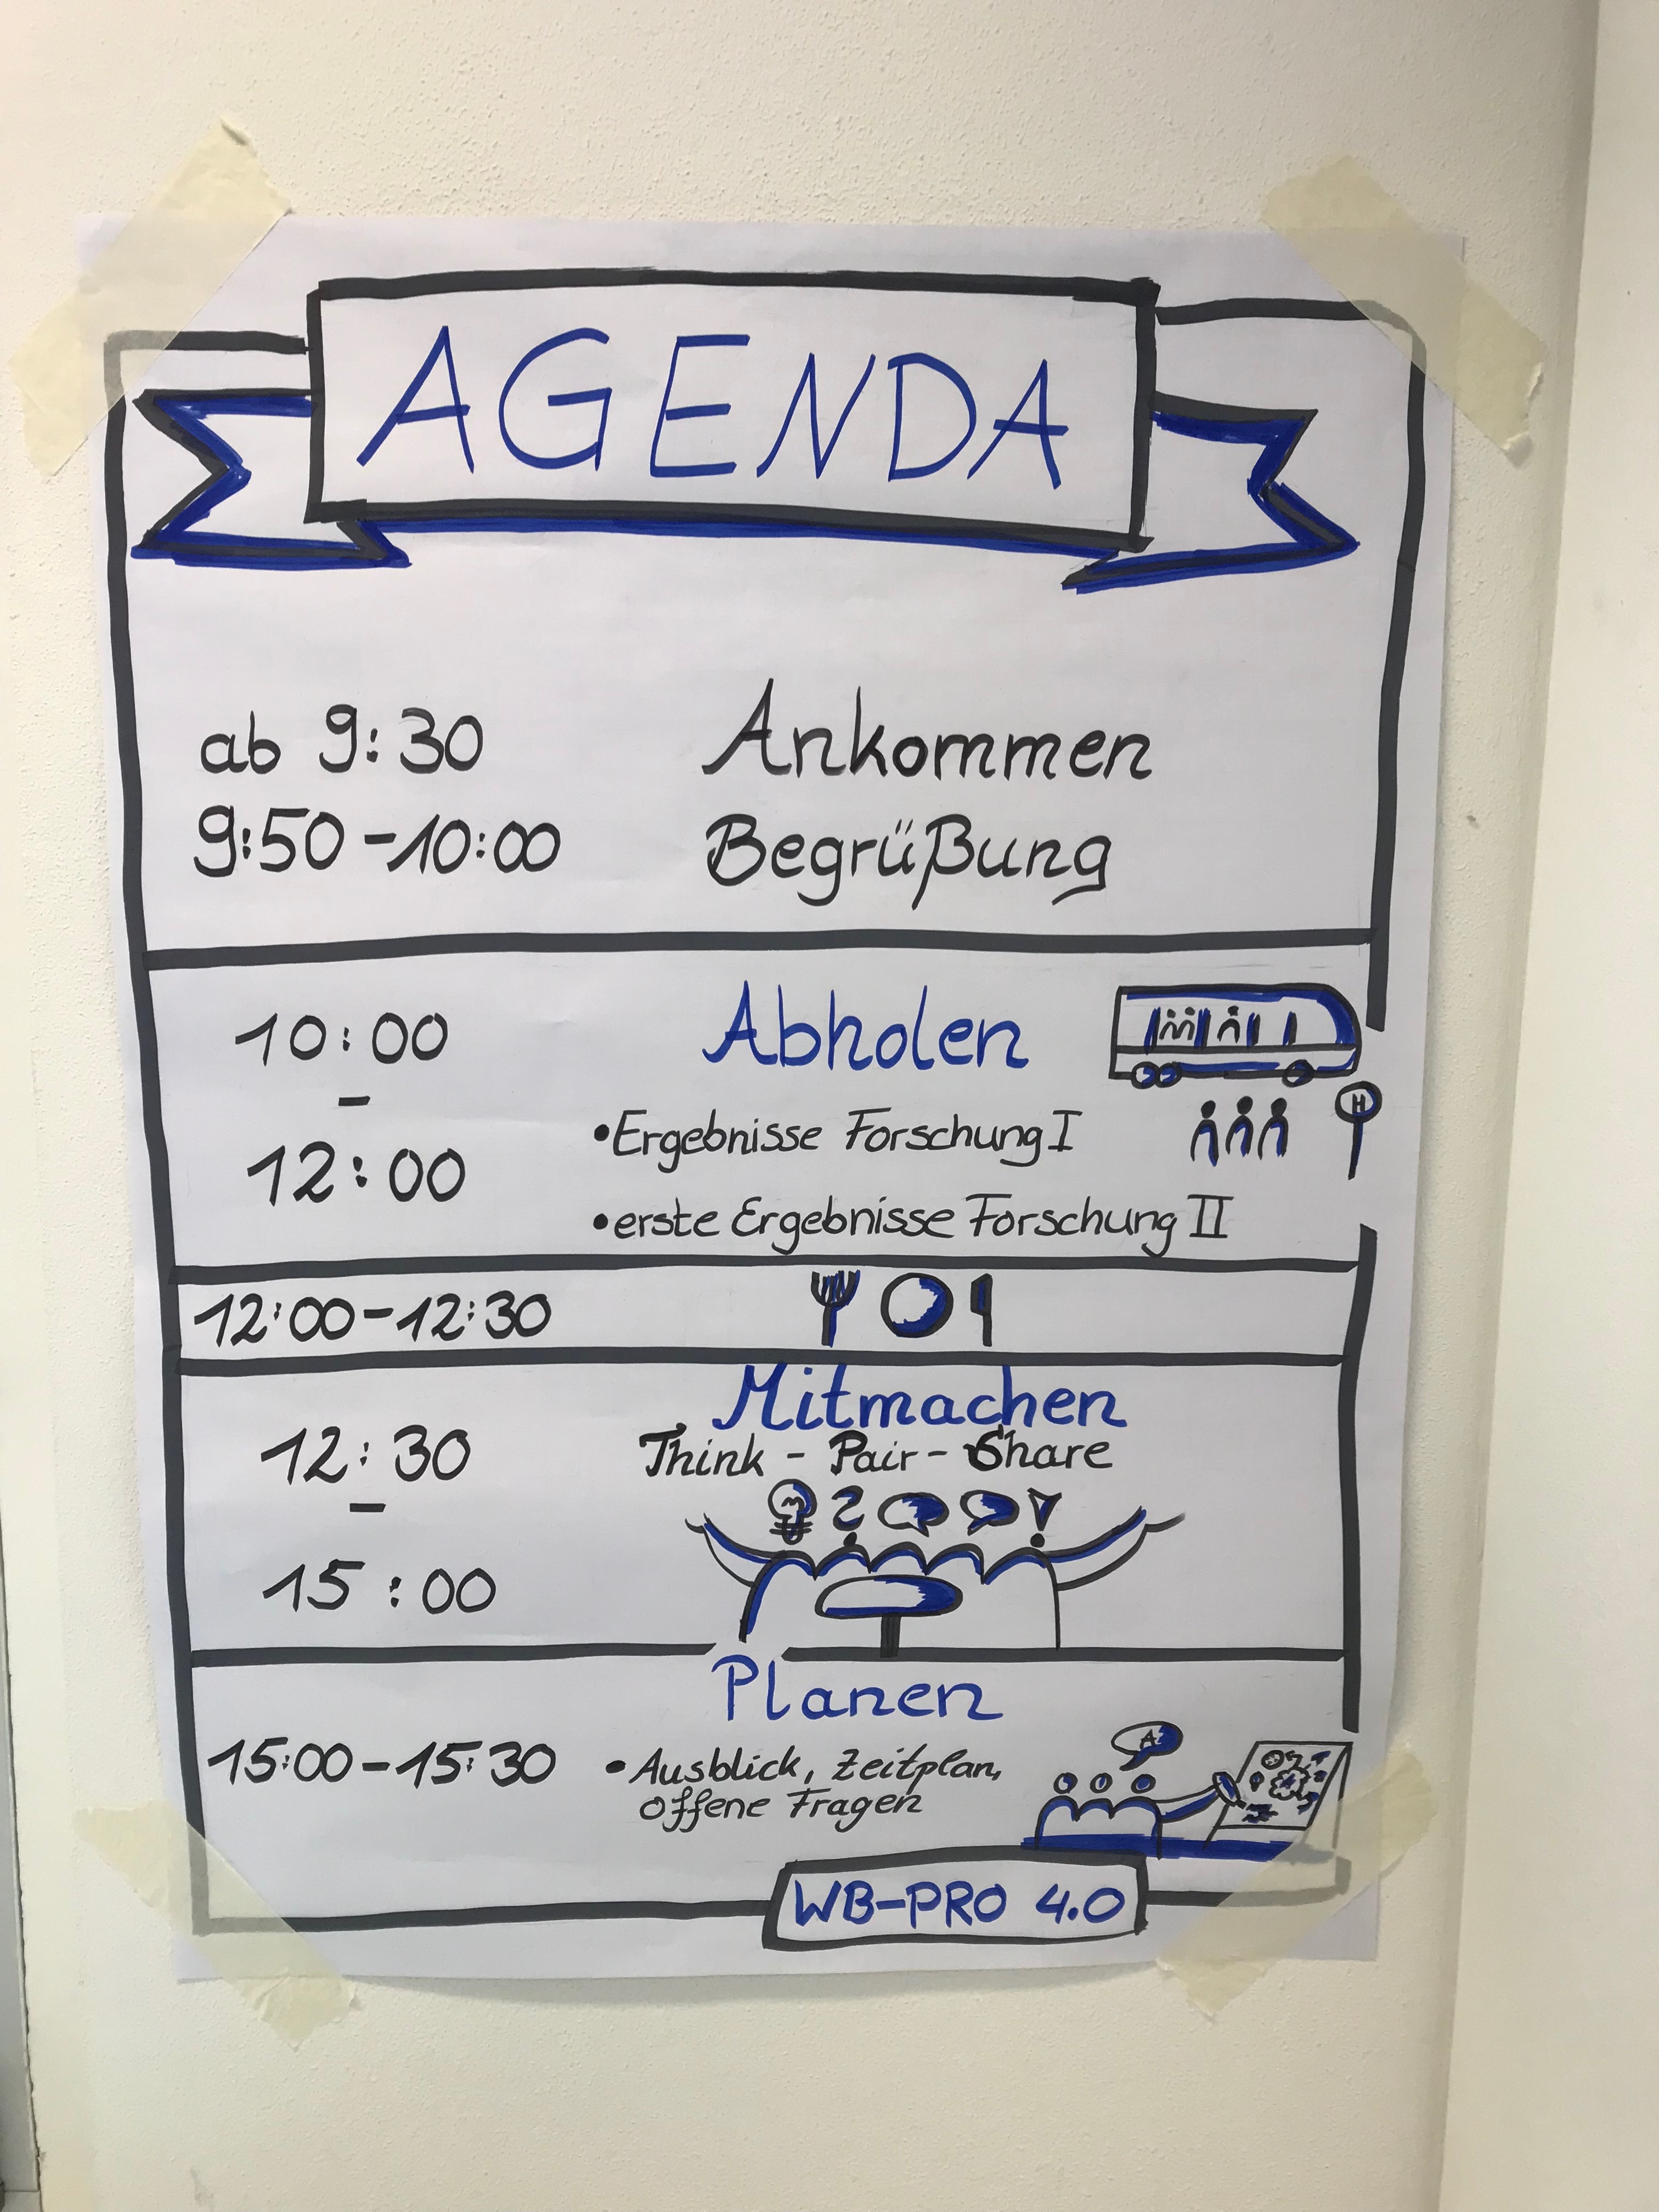 AGENDA
ab 9:30 Ankommen
9:50-10:00 Begrüßung
10:00 - 12:00 Abholen
•Ergebnisse Forschung I
•erste Ergebnisse Forschung II
H
12:00-12:30
12:30 - 15:00 Mitmachen
Think - Pair - Share
Planen
15:00-15:30 • Ausblick, Zeitplan,
offene Fragen
WB-PRO 4.0